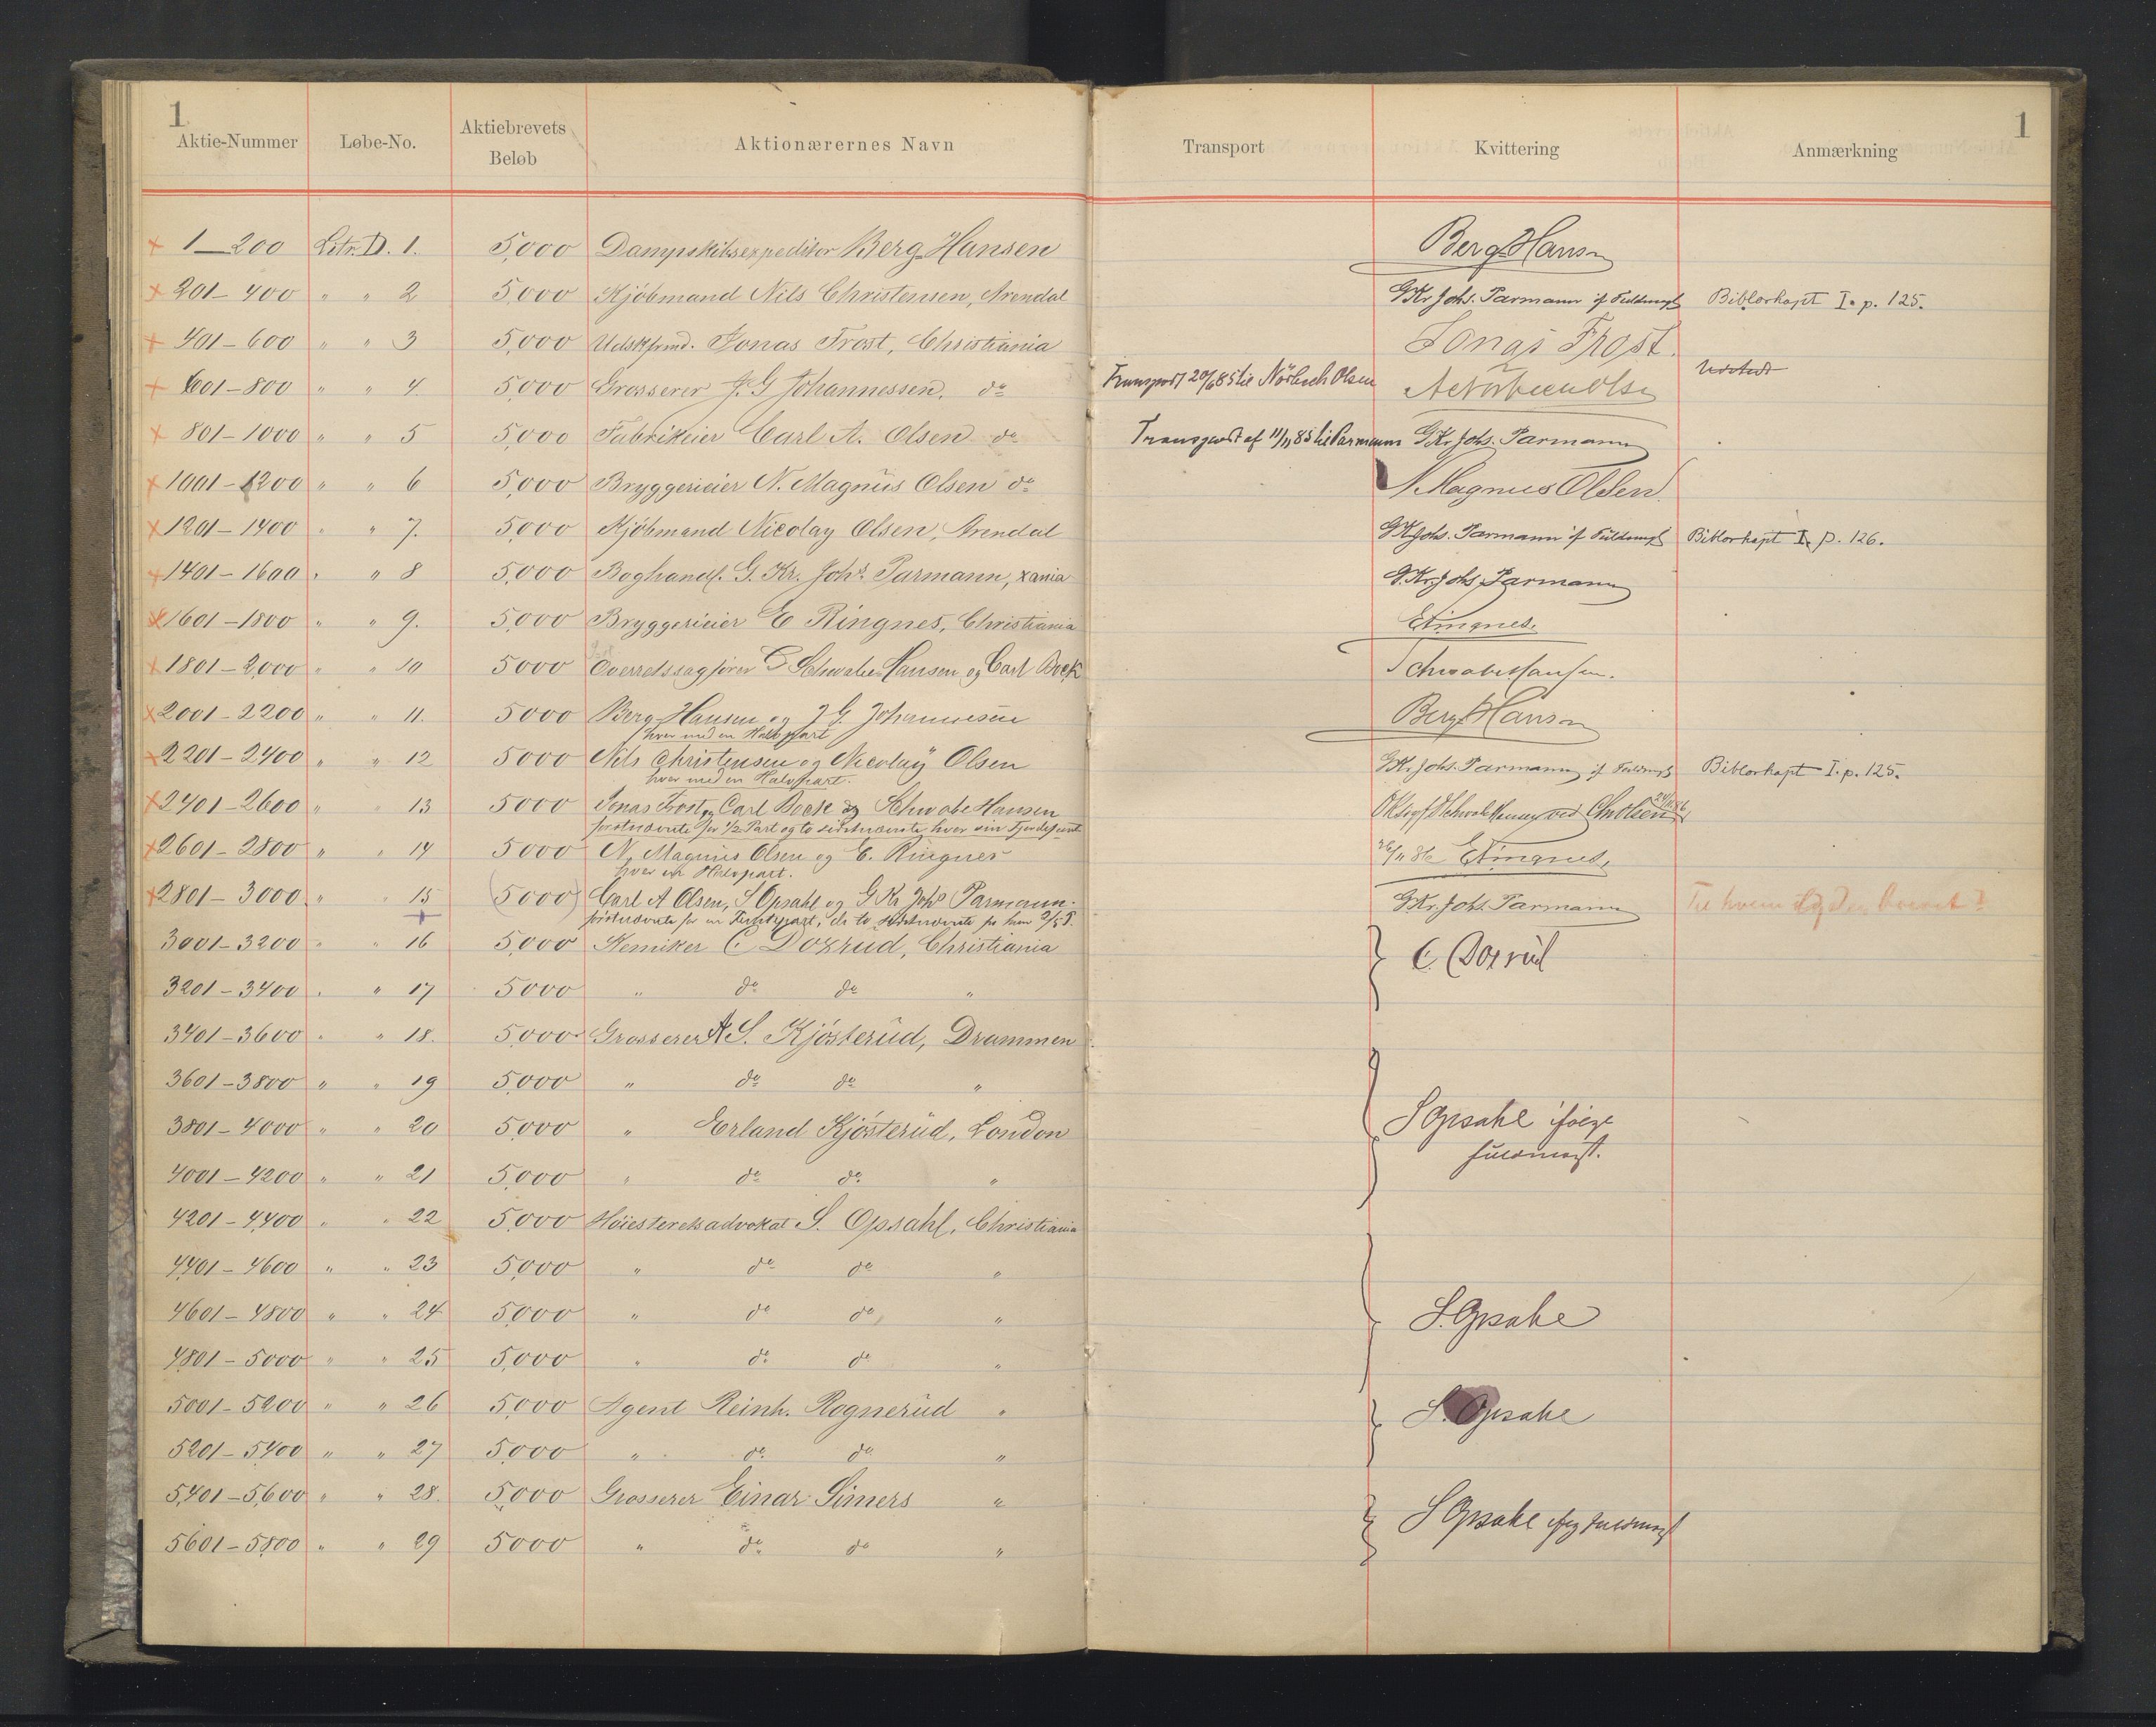 1
Aktie-Nummer Løbe-No. Aktiebrevets Beløb Aktionærernes Navn Transport Kvittering Anmærkning
1
1–200 Litr. D. 1. 5,000 Dampskibsexpeditør Berg-Hansen Berg-Hansen
201–400 " " 2 5,000 Kjöbmand Nils Christensen, Arendal GKr Johs. Parmann if Fuldmagt Biblorhapt I. p. 125.
401–600 " " 3 5,000 Udskfrmd. Jonas Frost, Christiania Jonas Frost.
601–800 " " 4. 5,000 Grosserer J. G Johannessen, do Transport 20/6 85 til Nörbech Olsen
801–1000 " " 5 5,000 Fabrikeier Carl A. Olsen do Transport af 11/11 85 til Parmann GKr Johs. Parmann
1001–1200 " " 6 5,000 Bryggerieier N. Magnus Olsen do N Magnus Olsen.
1201–1400 " " 7. 5,000 Kjöbmand Nicolay Olsen, Arendal GKJohs. Parmann if Fuldmagt Biblorhapt I. p. 126.
1401–1600 " " 8 5,000 Boghandl. G. Kr. Johs. Parmann, Xania G.Kr.Johs Parmann
1601–1800 " " 9. 5,000 Bryggerieier E Ringnes, Christiania ERingnes.
1801–2,000 " " 10 5000 Overretssagfører S Schwabe Hansen og Carl Bock Schwabe Hansen.
2001–2200 " " 11. 5000 Berg-Hansen og J G. Johannesen Berg-Hansen
hver med en Halvpart
2201–2400 " " 12 5000 Nils Christensen og Nicolay Olsen GKr. Johs. Parmann if Fuldmagt Biblorhapt I. p. 125.
hver med en Halvpart.
2401–2600 " " 13 5000 Jonas Frost, Carl Bock og Schwabe Hansen
förstnævnte for 1/2 Part og to sidstnævnte hver sin Fjerdepart
2601–2800 " " 14 5000 N. Magnus Olsen og E. Ringnes 26/11 86 ERingnes.
hver en Halvpart.
2801–3000 " " 15 (5000) Carl A Olsen, S Opsahl og G. Kr Johs Parmann. GKr. Johs. Parmann Til hvem
förstnævnte for en Femtepart, de to sidstnævnte for hver 2/5 P.
3001–3200 " " 16 5,000 Kemiker C Doxrud, Christiania C. Doxrud
3201–3400 " " 17 5000 " do do "
3401–3600 " " 18. 5,000 Grosserer A S. Kjösterud, Drammen
3601–3800 " " 19 5,000 " do do "
3801–4000 " " 20 5,000 " Erland Kjösterud, London S Opsahl ifölge
fuldmagt.
4001–4200 " " 21 5,000 " do do "
4201–4,400 " " 22 5,000 Höiesteretsadvokat S. Opsahl, Christiania
4401–4600 " " 23 5,000 " do do "
4601–4800 " " 24 5,000 " do do " S. Opsahl
4801–5000 " " 25 5,000 " do do "
5001–5200 " " 26 5,000 Agent Reinh. Rognerud " S. Opsahl
5201–5,400 " " 27 5,000 " do do "
5,401–5,600 " " 28. 5,000 Grosserer Einar Simers " S Opsahl ifølg fuldmagt
5601–5800 " " 29 5000 " do do "